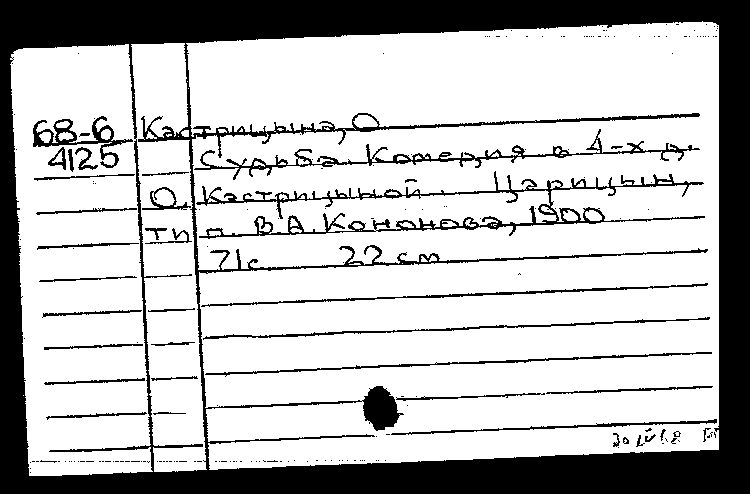 68-6 Кастрицына, О
4125 Судьба. Комедия в 4-х д.
О. Кастрицыной. Царицын,
тип. В.А. Кононова, 1900
71 с. 22 см